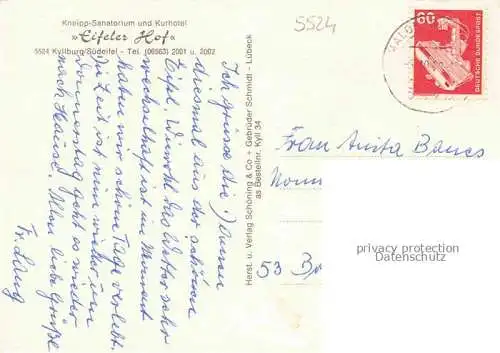 Kneipp-Sanatorium und Kurhotel
»Eifeler Hof«
5524 Kyllburg/Südeifel - Tel. (06563) 2001 u. 2002
5524
60
DEUTSCHE BUNDESPOST
Ich grüße die Damen
diesmal aus der schönen
Eifel. Wurch das Wetter sehr
wechselhaft ist im Moment
haben wir schöne Tage verlebt.
Zu Zeit ist nun wieder um
Donnerstag geht es wieder
nach Hause. Alles liebe Grüße
Fr. Lang
Herst. u. Verlag Schöning & Co · Gebrüder Schmidt - Lübeck
as Bestellnr. Kyll 34
Frau Anita
53
privacy protection
Dokumente24.com